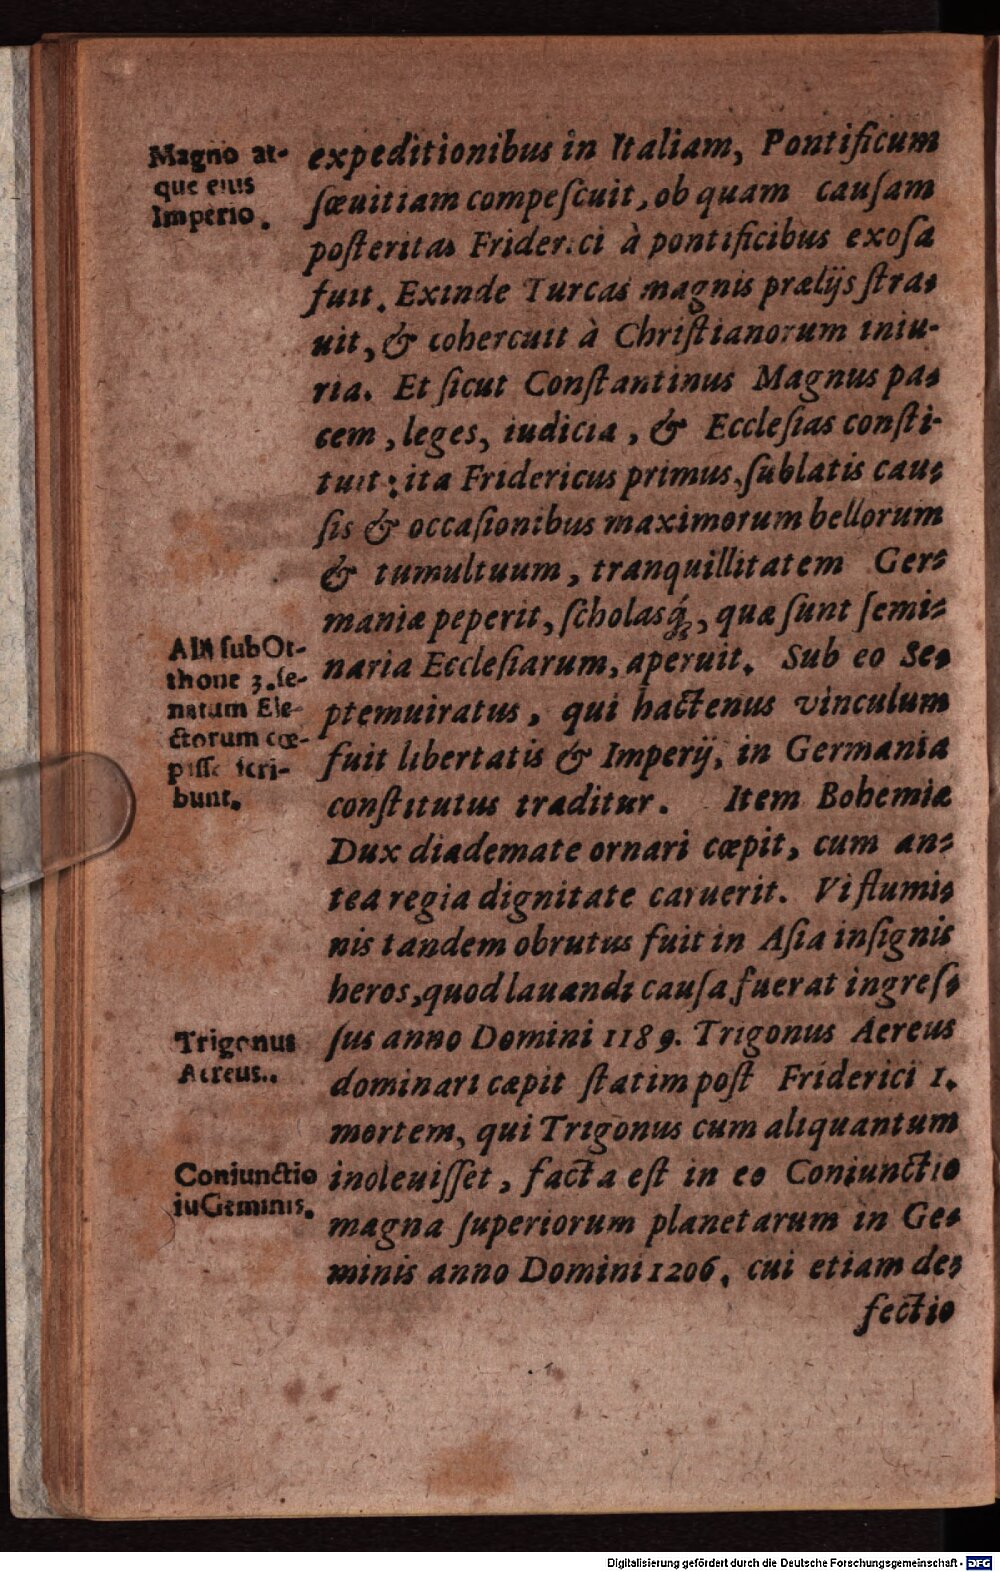 Magno at-
que eius
Imperio.
expeditionibus in Italiam, Pontificum
sœuitiam compescuit, ob quam causam
posteritas Friderici à pontificibus exosa
fuit. Exinde Turcas magnis prælijs stra-
uit, & cohercuit à Christianorum iniu-
ria. Et sicut Constantinus Magnus pa-
cem, leges, iudicia, & Ecclesias consti-
tuit: ita Fridericus primus, sublatis cau-
sis & occasionibus maximorum bellorum
& tumultuum, tranquillitatem Ger-
maniæ peperit, scholasq́;, quæ sunt semi-
naria Ecclesiarum, aperuit. Sub eo Se-
ptemuiratus, qui hactenus vinculum
fuit libertatis & Imperij, in Germania
constitutus traditur. Item Bohemiæ
Dux diademate ornari cœpit, cum an-
tea regia dignitate caruerit. Vi flumi-
nis tandem obrutus fuit in Asia insignis
heros, quod lauandi causa fuerat ingres-
sus anno Domini 1189. Trigonus Aereus
dominari cæpit statim post Friderici 1.
mortem, qui Trigonus cum aliquantum
inoleuisset, facta est in eo Coniunctio
magna superiorum planetarum in Ge-
minis anno Domini 1206, cui etiam de-
fectio
Alij sub Ot-
thone 3. se-
natum Ele-
ctorum cœ-
pisse scri-
bunt.
Trigonus
Aereus.
Coniunctio
iu Geminis.
Digitalisierung gefördert durch die Deutsche Forschungsgemeinschaft - DFG